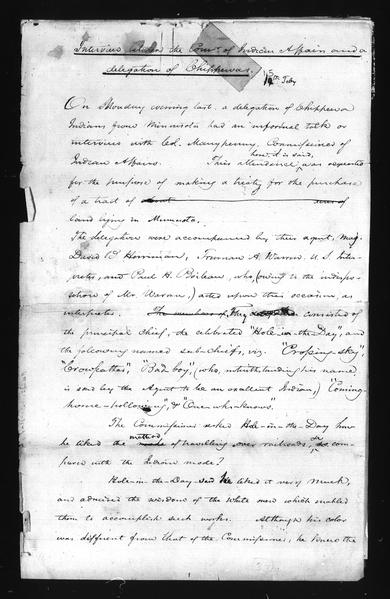 Interview between the Com.r of Indian Affairs and a
delegation of Chippewas.
15th Feby
On Monday evening last, a delegation of Chippewa
Indians from Minnesota had an informal talk or
interview with Col. Manypenny, Commissioner of
Indian Affairs. Their attendance here, it is said, was requested
for the purpose of making a treaty for the purchase
of a tract of
land lying in Minnesota.
The delegation were accompanied by their agent, Maj.
David B Herriman, Truman A. Warren U.S. Inter-
preter, and Paul H. Beileau, who (owing to the indispo-
sition of Mr. Warren,) acted upon this occasion, as
interpreter. The number of They consisted of
the principal chief, the celebrated "Hole-in-the-Day", and
the following named sub-chiefs, viz. "Crossing-sky",
"Crowfeather", "Bad boy", (who, notwithstanding his name,
is said by the Agent to be an excellent Indian,) "Coming-
home-hollowing", & "One-who-knows".
The Commissioner asked Hole-in-the-Day how
he liked the method of travelling over railroads, as com-
pared with the Indian mode?
Hole-in-the-Day said he liked it very much,
and admired the wisdom of the white men which enabled
them to accomplish such works. Although his color
was different from that of the Commissioner, he knew the